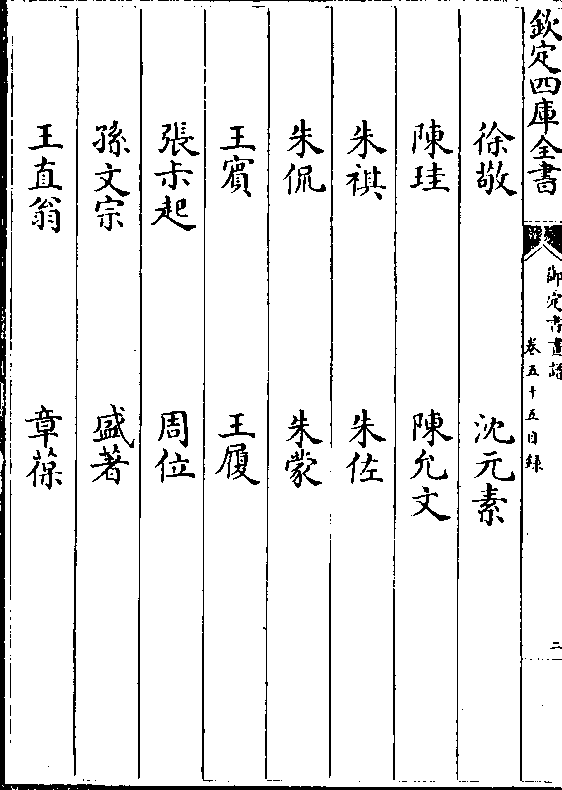 欽定四庫全書
御定書畫譜
卷五十五目錄
二
徐敬 沈元素
陳珪 陳允文
朱祺 朱佐
朱侃 朱蒙
王賓 王履
張未起 周位
孫文宗 盛著
王直翁 章葆